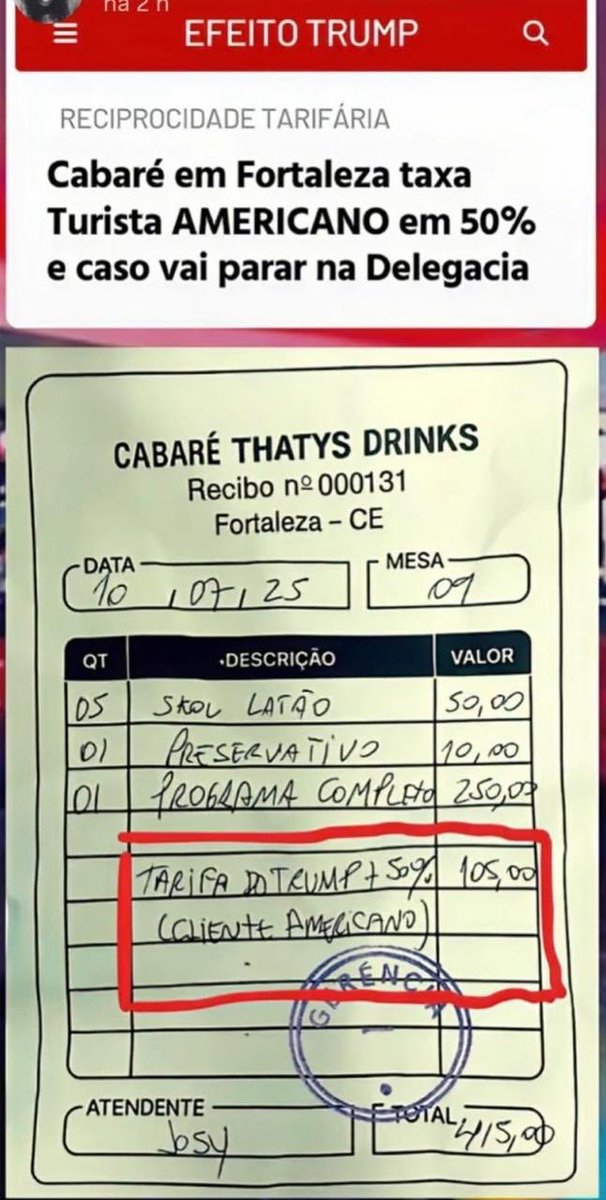 há 2 h
EFEITO TRUMP
RECIPROCIDADE TARIFÁRIA
Cabaré em Fortaleza taxa
Turista AMERICANO em 50%
e caso vai parar na Delegacia
CABARÉ THATYS DRINKS
Recibo nº 000131
Fortaleza – CE
DATA 10 / 07 / 25 MESA 09
QT DESCRIÇÃO VALOR
05 SKOL LATÃO 50,00
01 PRESERVATIVO 10,00
01 PROGRAMA COMPLETO 250,00
TARIFA DO TRUMP + 50% 105,00
(CLIENTE AMERICANO)
GERÊNCIA
ATENDENTE Josy TOTAL 415,00